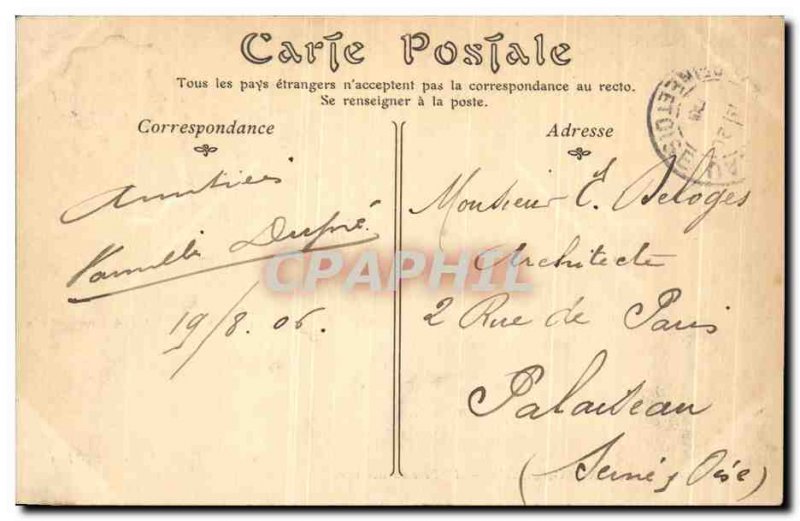 Carte Postale
Tous les pays étrangers n'acceptent pas la correspondance au recto.
Se renseigner à la poste.
Correspondance
Adresse
Amitiés
Famille Dupré
19/8.06.
Monsieur E. Deloges
Architecte
2 Rue de Paris
Palaiseau
(Seine & Oise)
ET OISE
CPAPHIL